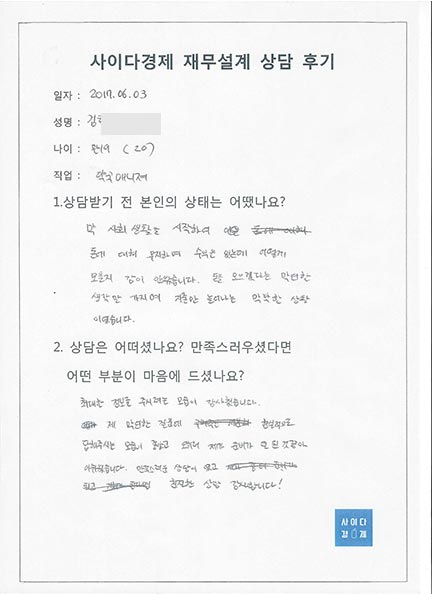 사이다경제 재무설계 상담 후기
일자 : 2017.06.03
성명 : 김
나이 : (20)
직업 : 매니저
1.상담받기 전 본인의 상태는 어땠나요?
막 사회 생활을 시작하여
돈에 대해 무지하여 수익은 있는데 어떻게
모을지 감이 안왔습니다. 돈 모으겠다는 막연한
생각만 가지며 지출만 늘어나는 막막한 상황
이었습니다.
2. 상담은 어떠셨나요? 만족스러우셨다면
어떤 부분이 마음에 드셨나요?
최대한 정보를 주시려는 모습이 감사했습니다.
제 막연한 질문에 현실적으로
답해주시는 모습이 좋았고 제가 준비가 안 된 것 같아
아쉬웠습니다. 만족스러운 상담이 였고
훈훈한 상담 감사합니다!
사이다
경제